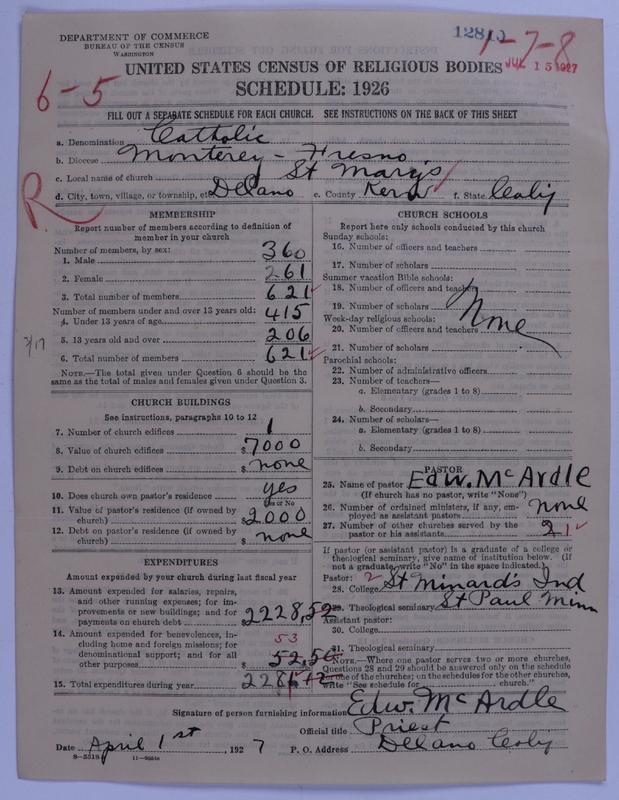 DEPARTMENT OF COMMERCE
BUREAU OF THE CENSUS
WASHINGTON
12810
1-7-8
JUL 15 1927
UNITED STATES CENSUS OF RELIGIOUS BODIES
SCHEDULE: 1926
6-5
FILL OUT A SEPARATE SCHEDULE FOR EACH CHURCH. SEE INSTRUCTIONS ON THE BACK OF THIS SHEET
a. Denomination Catholic
b. Diocese Monterey - Fresno
c. Local name of church St Mary's
d. City, town, village, or township, etc. Delano e. County Kern f. State Calif
R
MEMBERSHIP
Report number of members according to definition of
member in your church
Number of members, by sex:
1. Male 360
2. Female 261
3. Total number of members 621
Number of members under and over 13 years old:
4. Under 13 years of age 415
5. 13 years old and over 206
6. Total number of members 621
NOTE.—The total given under Question 6 should be the
same as the total of males and females given under Question 3.
CHURCH BUILDINGS
See instructions, paragraphs 10 to 12
7. Number of church edifices 1
8. Value of church edifices $ 7000
9. Debt on church edifices $ none
10. Does church own pastor's residence yes
Yes or No
11. Value of pastor's residence (if owned by
church) $ 2000
12. Debt on pastor's residence (if owned by
church) $ none
EXPENDITURES
Amount expended by your church during last fiscal year
13. Amount expended for salaries, repairs,
and other running expenses; for im-
provements or new buildings; and for
payments on church debt $ 2228.52
14. Amount expended for benevolences, in-
cluding home and foreign missions; for
denominational support; and for all
other purposes $ 52.50
53
15. Total expenditures during year
CHURCH SCHOOLS
Report here only schools conducted by this church
Sunday schools:
16. Number of officers and teachers
17. Number of scholars
Summer vacation Bible schools:
18. Number of officers and teachers
19. Number of scholars
None
Week-day religious schools:
20. Number of officers and teachers
21. Number of scholars
Parochial schools:
22. Number of administrative officers
23. Number of teachers—
a. Elementary (grades 1 to 8)
b. Secondary
24. Number of scholars—
a. Elementary (grades 1 to 8)
b. Secondary
PASTOR
25. Name of pastor Edw. McArdle
(If church has no pastor, write "None")
26. Number of ordained ministers, if any, em-
ployed as assistant pastors none
27. Number of other churches served by the
pastor or his assistants 2 1
If pastor (or assistant pastor) is a graduate of a college or
theological seminary, give name of institution below. (If
not a graduate, write "No" in the space indicated.)
Pastor: 2
28. College St Minard's Ind
29. Theological seminary St Paul Minn
Assistant pastor:
30. College
31. Theological seminary
NOTE.—Where one pastor serves two or more churches,
Questions 28 and 29 should be answered only on the schedule
for one of the churches; on the schedules for the other churches,
write "See schedule for church."
Signature of person furnishing information Edw. McArdle
Official title Priest
Date April 1st, 1927 P. O. Address Delano Calif
8-5518